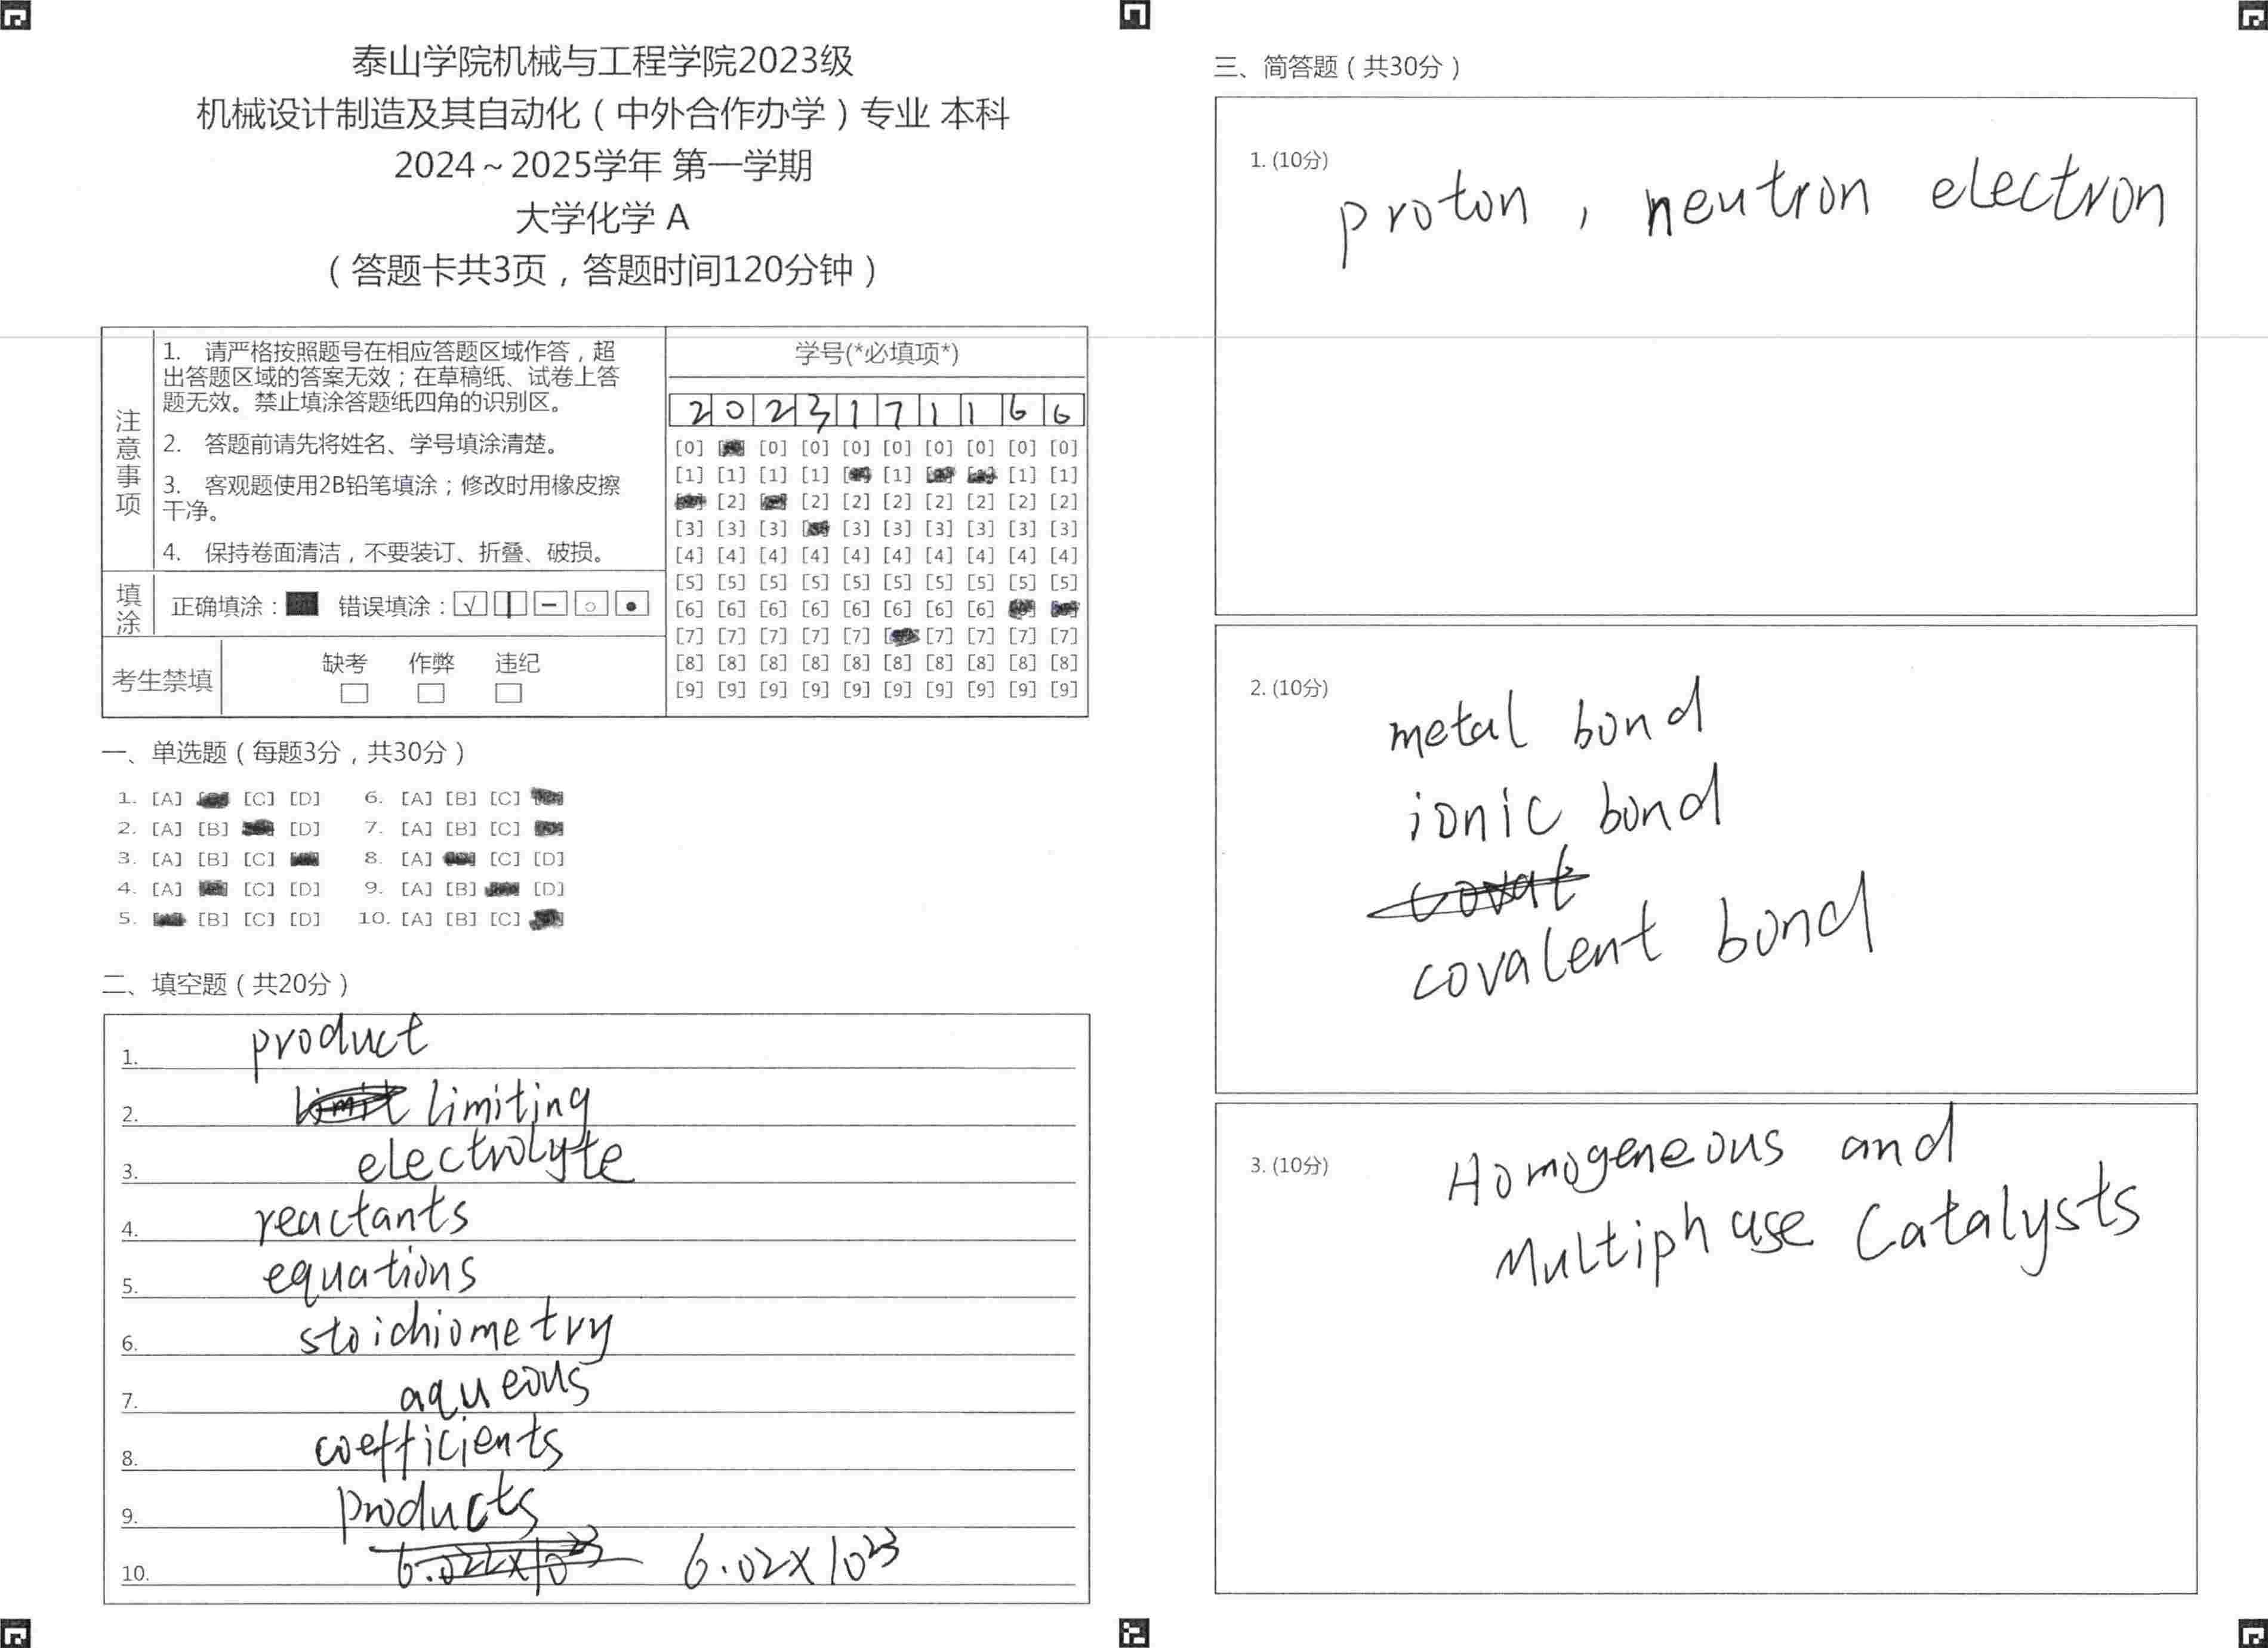 泰山学院机械与工程学院2023级
机械设计制造及其自动化（中外合作办学）专业 本科
2024～2025学年 第一学期
大学化学 A
（答题卡共3页，答题时间120分钟）
注意事项
1. 请严格按照题号在相应答题区域作答，超
出答题区域的答案无效；在草稿纸、试卷上答
题无效。禁止填涂答题纸四角的识别区。
2. 答题前请先将姓名、学号填涂清楚。
3. 客观题使用2B铅笔填涂；修改时用橡皮擦
干净。
4. 保持卷面清洁，不要装订、折叠、破损。
填涂
正确填涂： 错误填涂：
考生禁填
缺考 作弊 违纪
学号(*必填项*)
2 0 2 3 1 7 1 1 6 6
[0] [0] [0] [0] [0] [0] [0] [0] [0]
[1] [1] [1] [1] [1] [1] [1]
[2] [2] [2] [2] [2] [2] [2] [2]
[3] [3] [3] [3] [3] [3] [3] [3] [3]
[4] [4] [4] [4] [4] [4] [4] [4] [4] [4]
[5] [5] [5] [5] [5] [5] [5] [5] [5] [5]
[6] [6] [6] [6] [6] [6] [6] [6]
[7] [7] [7] [7] [7] [7] [7] [7] [7]
[8] [8] [8] [8] [8] [8] [8] [8] [8] [8]
[9] [9] [9] [9] [9] [9] [9] [9] [9] [9]
一、单选题（每题3分，共30分）
1. [A] [C] [D] 6. [A] [B] [C]
2. [A] [B] [D] 7. [A] [B] [C]
3. [A] [B] [C] 8. [A] [C] [D]
4. [A] [C] [D] 9. [A] [B] [D]
5. [B] [C] [D] 10. [A] [B] [C]
二、填空题（共20分）
1. product
2. limit limiting
3. electrolyte
4. reactants
5. equations
6. stoichiometry
7. aqueous
8. coefficients
9. products
10. 6.022×10²³ 6.02×10²³
三、简答题（共30分）
1. (10分)
proton, neutron electron
2. (10分)
metal bond
ionic bond
covalent bond
3. (10分)
Homogeneous and
Multiphase Catalysts